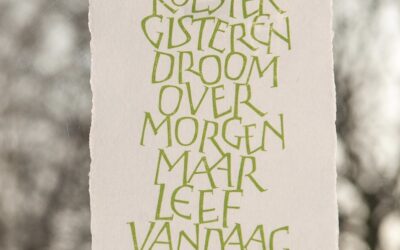 KOESTER
GISTEREN
DROOM
OVER
MORGEN
MAAR
LEEF
VANDAAG